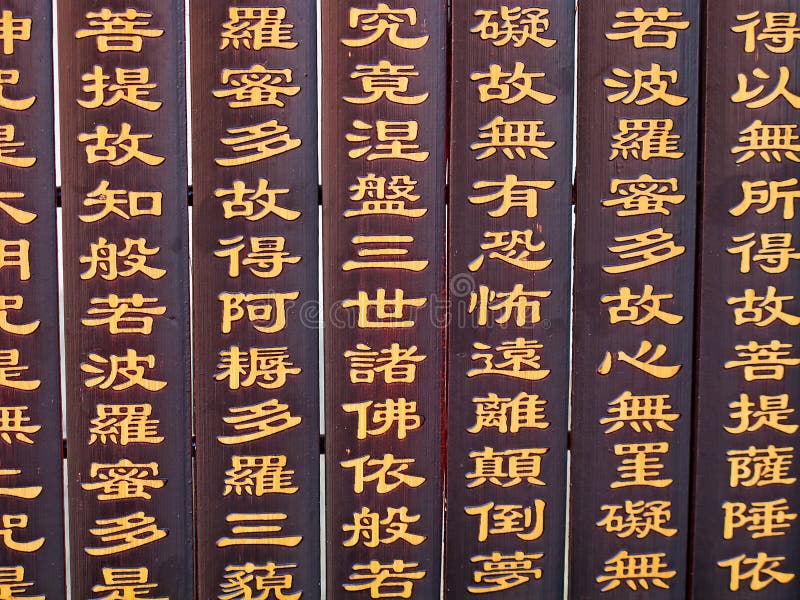 得以無所得故菩提薩陲依
若波羅蜜多故心無罣礙無
礙故無有恐怖遠離顛倒夢
究竟涅盤三世諸佛依般若
羅蜜多故得阿耨多羅三藐
菩提故知般若波羅蜜多是
神咒是大明咒是無上咒是
dreamstime